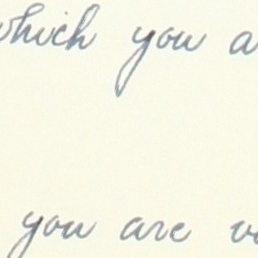 which you
you are